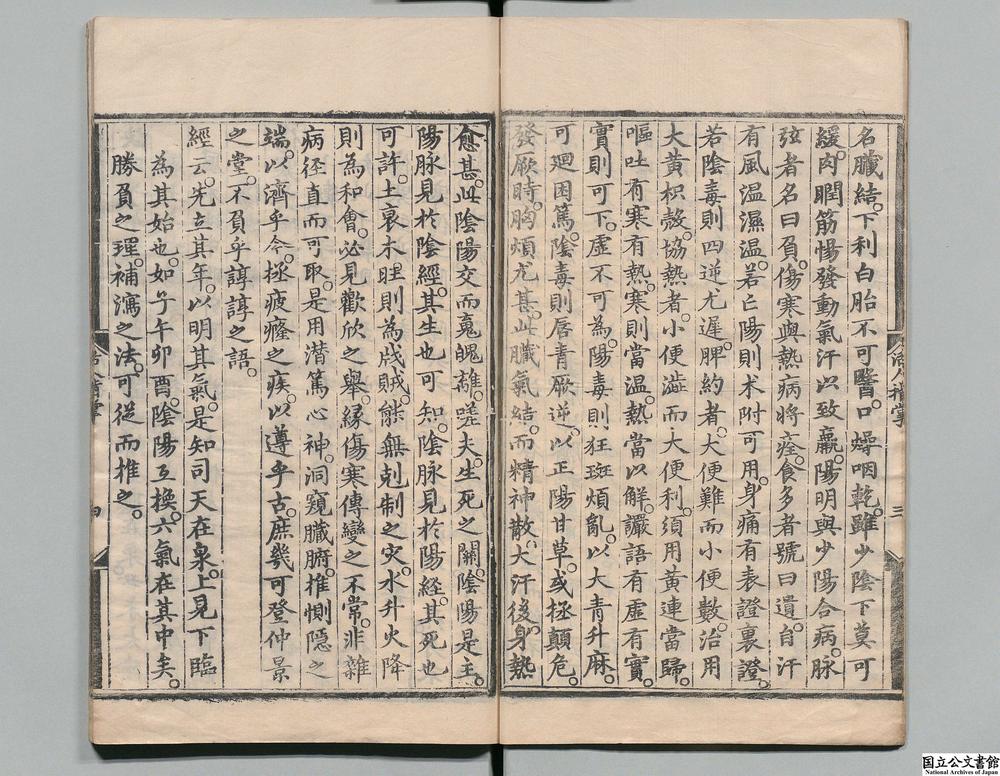 名臟結。下利白胎不可醫。口燥咽乾。雖少陰下莫可
緩。肉瞤筋惕發動氣汗以致羸。陽明與少陽合病。脉
弦者名曰負。傷寒與熱病將痊。食多者號曰遺。自汗
有風溫濕溫。若亡陽則术附可用。身痛有表證裏證。
若陰毒則四逆尤遲。脾約者。大便難而小便數。治用
大黄枳殼。協熱者。小便澁而大便利。須用黄連當歸。
嘔吐有寒有熱。寒則當溫。熱當以解。讝語有虛有實。
實則可下。虛不可為。陽毒則狂斑煩亂。以大青升麻。
可廻困篤。陰毒則唇青厥逆。以正陽甘草。或拯顛危。
發厥時。胸煩尤甚。此臟氣結。而精神散。大汗後。身熱
愈甚。此陰陽交而䰟魄離。嗟夫。生死之關。陰陽是主。
陽脉見於陰經。其生也可知。陰脉見於陽經。其死也
可許。土衰木旺則為戕賊。能無剋制之灾。水升火降
則為和會。必見歡欣之舉。緣傷寒傳變之不常。非雜
病徑直而可取。是用潜篤心神。洞窺臟腑。推惻隱之
端。以濟乎今。拯疲癃之疾。以遵乎古。庶幾可登仲景
之堂。不負乎諄諄之語。
經云。先立其年。以明其氣。是知司天在泉。上見下臨
為其始也。如子午卯酉。陰陽互換。六氣在其中矣。
勝負之理。補瀉之法。可從而推之。
三
四
国立公文書館
National Archives of Japan